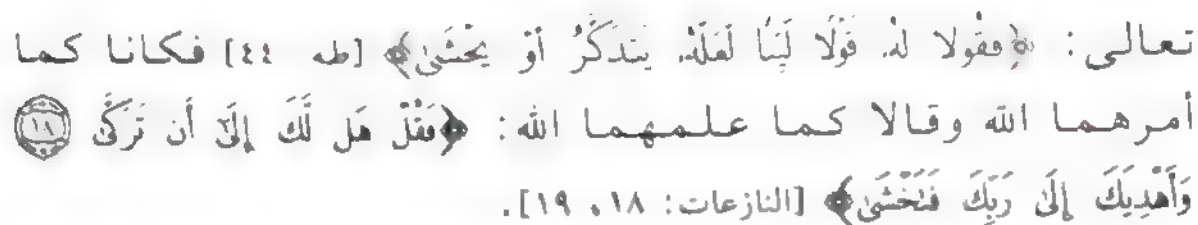 تعالى: ﴿فَقُولَا لَهُ قَوْلًا لَيِّنًا لَعَلَّهُ يَتَذَكَّرُ أَوْ يَخْشَىٰ﴾ [طه ٤٤] فكانا كما
أمرهما الله وقالا كما علمهما الله: ﴿فَقُلْ هَل لَّكَ إِلَىٰ أَن تَزَكَّىٰ ١٨
وَأَهْدِيَكَ إِلَىٰ رَبِّكَ فَتَخْشَىٰ﴾ [النازعات: ١٨، ١٩].